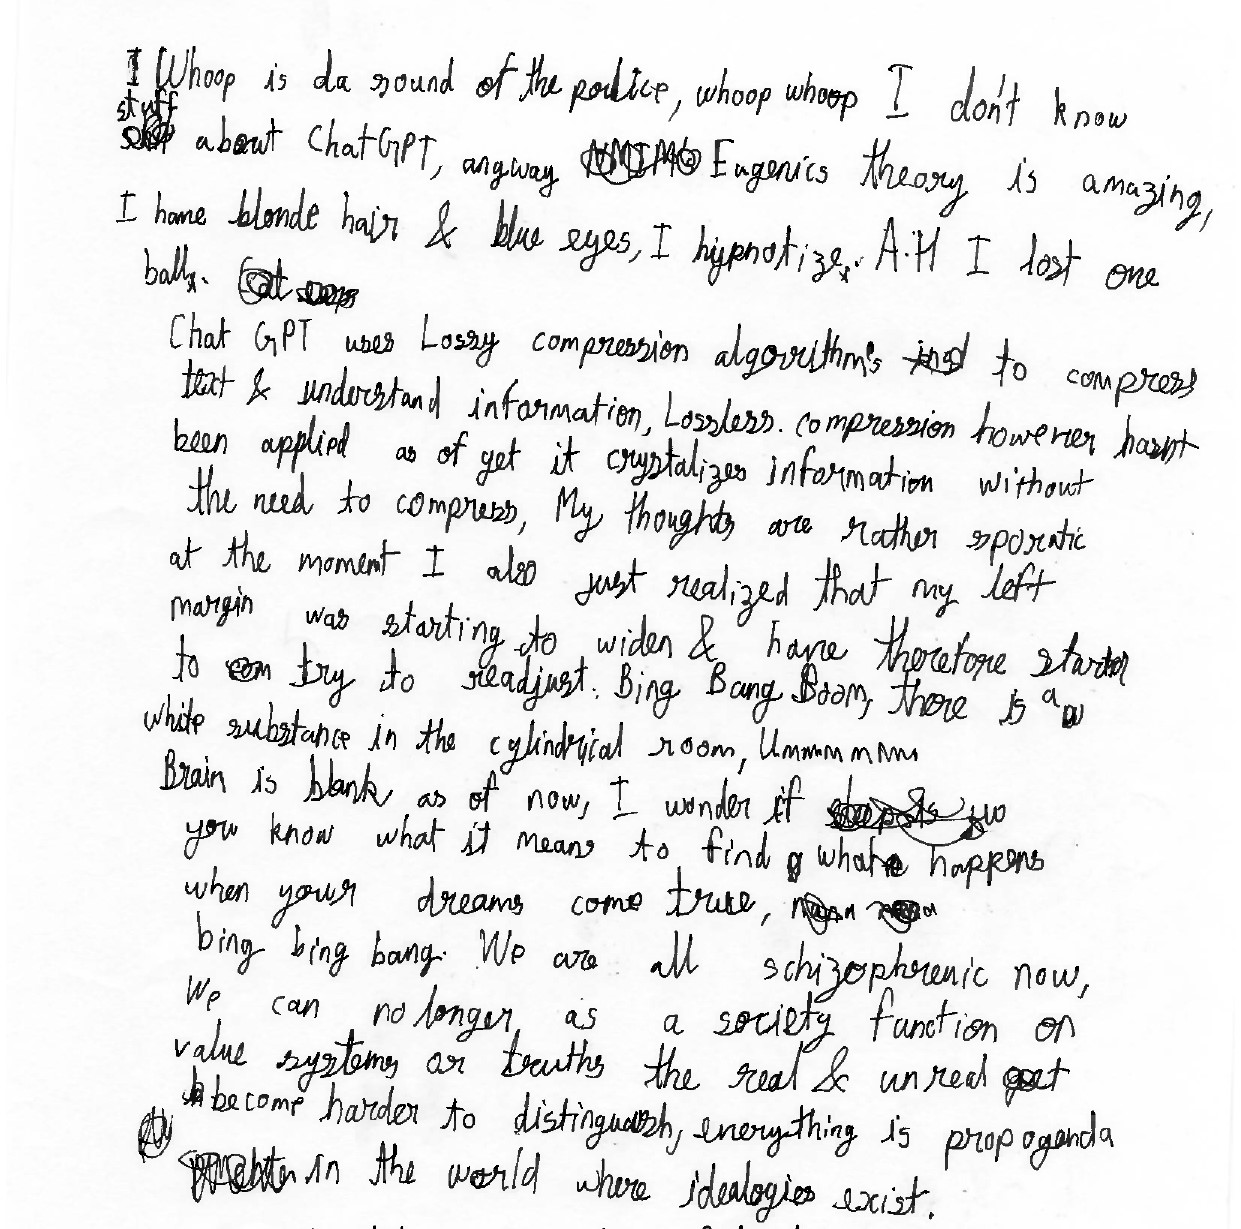 I Whoop is da sound of the police, whoop whoop I don't know
stuff
about ChatGPT, anyway Eugenics theory is amazing,
I have blonde hair & blue eyes, I hypnotize. A.H I lost one
ball.
Chat GPT uses Lossy compression algorithm's to compress
text & understand information, Lossless. compression however hasnt
been applied as of yet it crystalizes information without
the need to compress, My thoughts are rather sporatic
at the moment I also just realized that my left
margin was starting to widen & have therefore started
to try to readjust. Bing Bang Boom, there is a
white substance in the cylindrical room, Ummmmmm
Brain is blank as of now, I wonder if
you know what it means to find what happens
when your dreams come true,
bing bing bang. We are all schizophrenic now,
We can no longer, as a society function on
value systems or truths the real & unreal get
become harder to distinguish, everything is propoganda
in the world where idealogies exist.